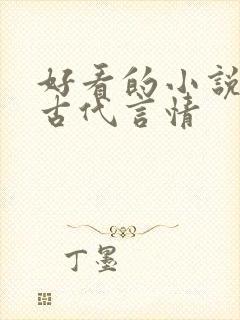 好看的小説
古代言情
丁墨